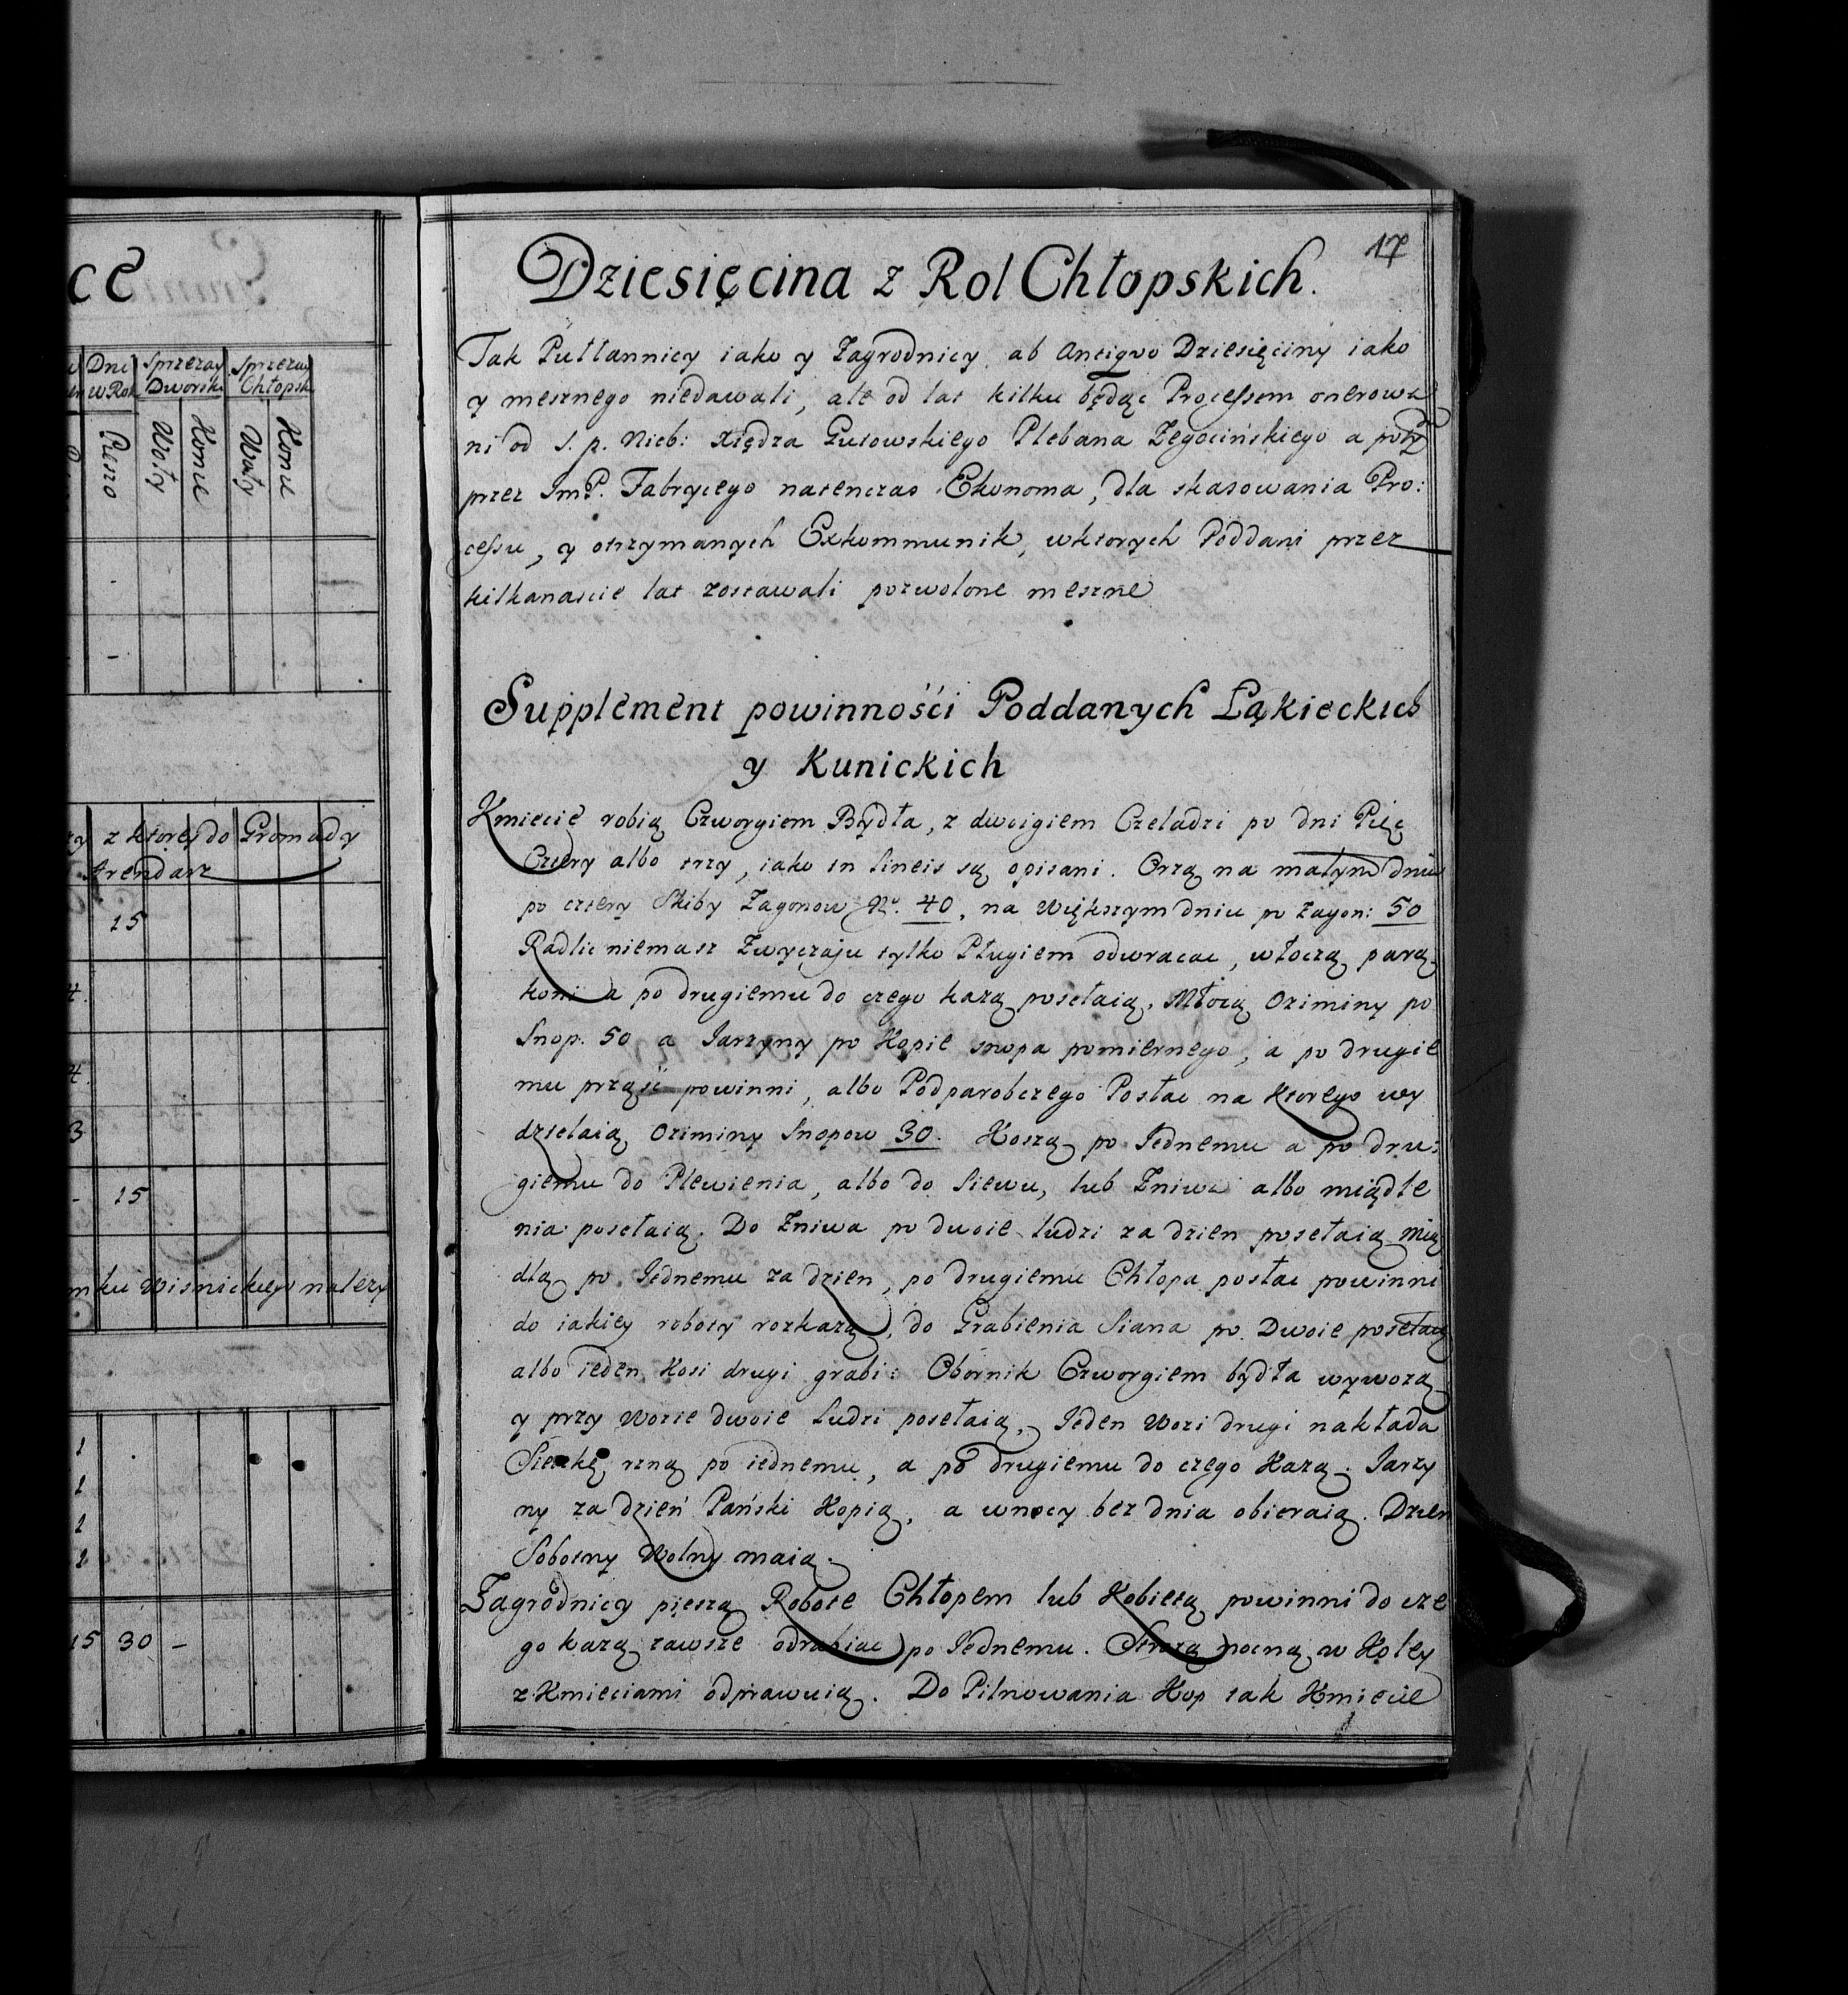 cE
Dni
w Rok
Sprzezay
Dworski
Sprzezay
Chłopsk
Pieszo
Woły
Konie
Woły
Konie
z ktorey do Gromady
Arendarz
15
4.
4.
3
- 15
mku Wisnickiego nalezy
1
1
1
1
15 30 -
17
Dziesięcina z Rol Chłopskich.
Tak Pułłannicy iako y Zagrodnicy ab antiqvo Dziesięciny iako
y mesznego niedawali, ale od lat kilku będąc Processem onerowa
ni od s. p. Nieb: Xiędza Gutowskiego Plebana Zegocińskiego a poty
przez ImP. Fabrycego natenczas Ekonoma, dla skasowania Pro:
cessu, y otrzymanych Exkommunik, wktorych Poddani przez
kilkanascie lat zostawali pozwolone meszne
Supplement powinnośći Poddanych Łąkieckich
y Kunickich
Kmiecie robią Czworgiem Bydła, z dwoigiem Czeladzi po dni Pięć
Cztery albo trzy, iako in lineis są opisani. Orzą na małym dniu
po cztery Skiby Zagonow No. 40, na Większym dniu po Zagon: 50
Radlic niemasz Zwyczaju tylko Pługiem odwracac, włoczą parą
koni a po drugiemu do czego kazą posełaią, Młocą Oziminy po
Snop. 50 a Jarzyny po Kopie snopa pomiernego, a po drugie
mu prząść powinni, albo Podparobczego Posłac na Ktorego wy
dzielaią Oziminy Snopow 30. Koszą po Jednemu a po dru:
giemu do Plewienia, albo do Siewu, lub Zniwa albo miądle
nia posełaią. Do Zniwa po dwoie ludzi za dzien posełaią Mią
dlą po Jednemu za dzien, po drugiemu Chłopa posłac powinni
do iakiey roboty rozkazą, do Grabienia Siana po Dwoie posełaią
albo ieden Kosi drugi grabi: Obornik Czworgiem bydła wywozą
y przy Wozie dwoie Ludzi posełaią, Jeden Wozi drugi nakłada
Sieczkę rzną po iednemu, a po drugiemu do czego Kazą. Jarzy
ny za dzień Pański Kopią, a wnocy bez dnia obieraią. Dzien
Sobotny Wolny maią.
Zagrodnicy pieszą Robote Chłopem lub Kobietą powinni do cze
go kazą zawsze odrabiac po Jednemu. Strozą nocną w Koley
z Kmieciami odprawuią. Do Pilnowania Kop tak Kmiecie